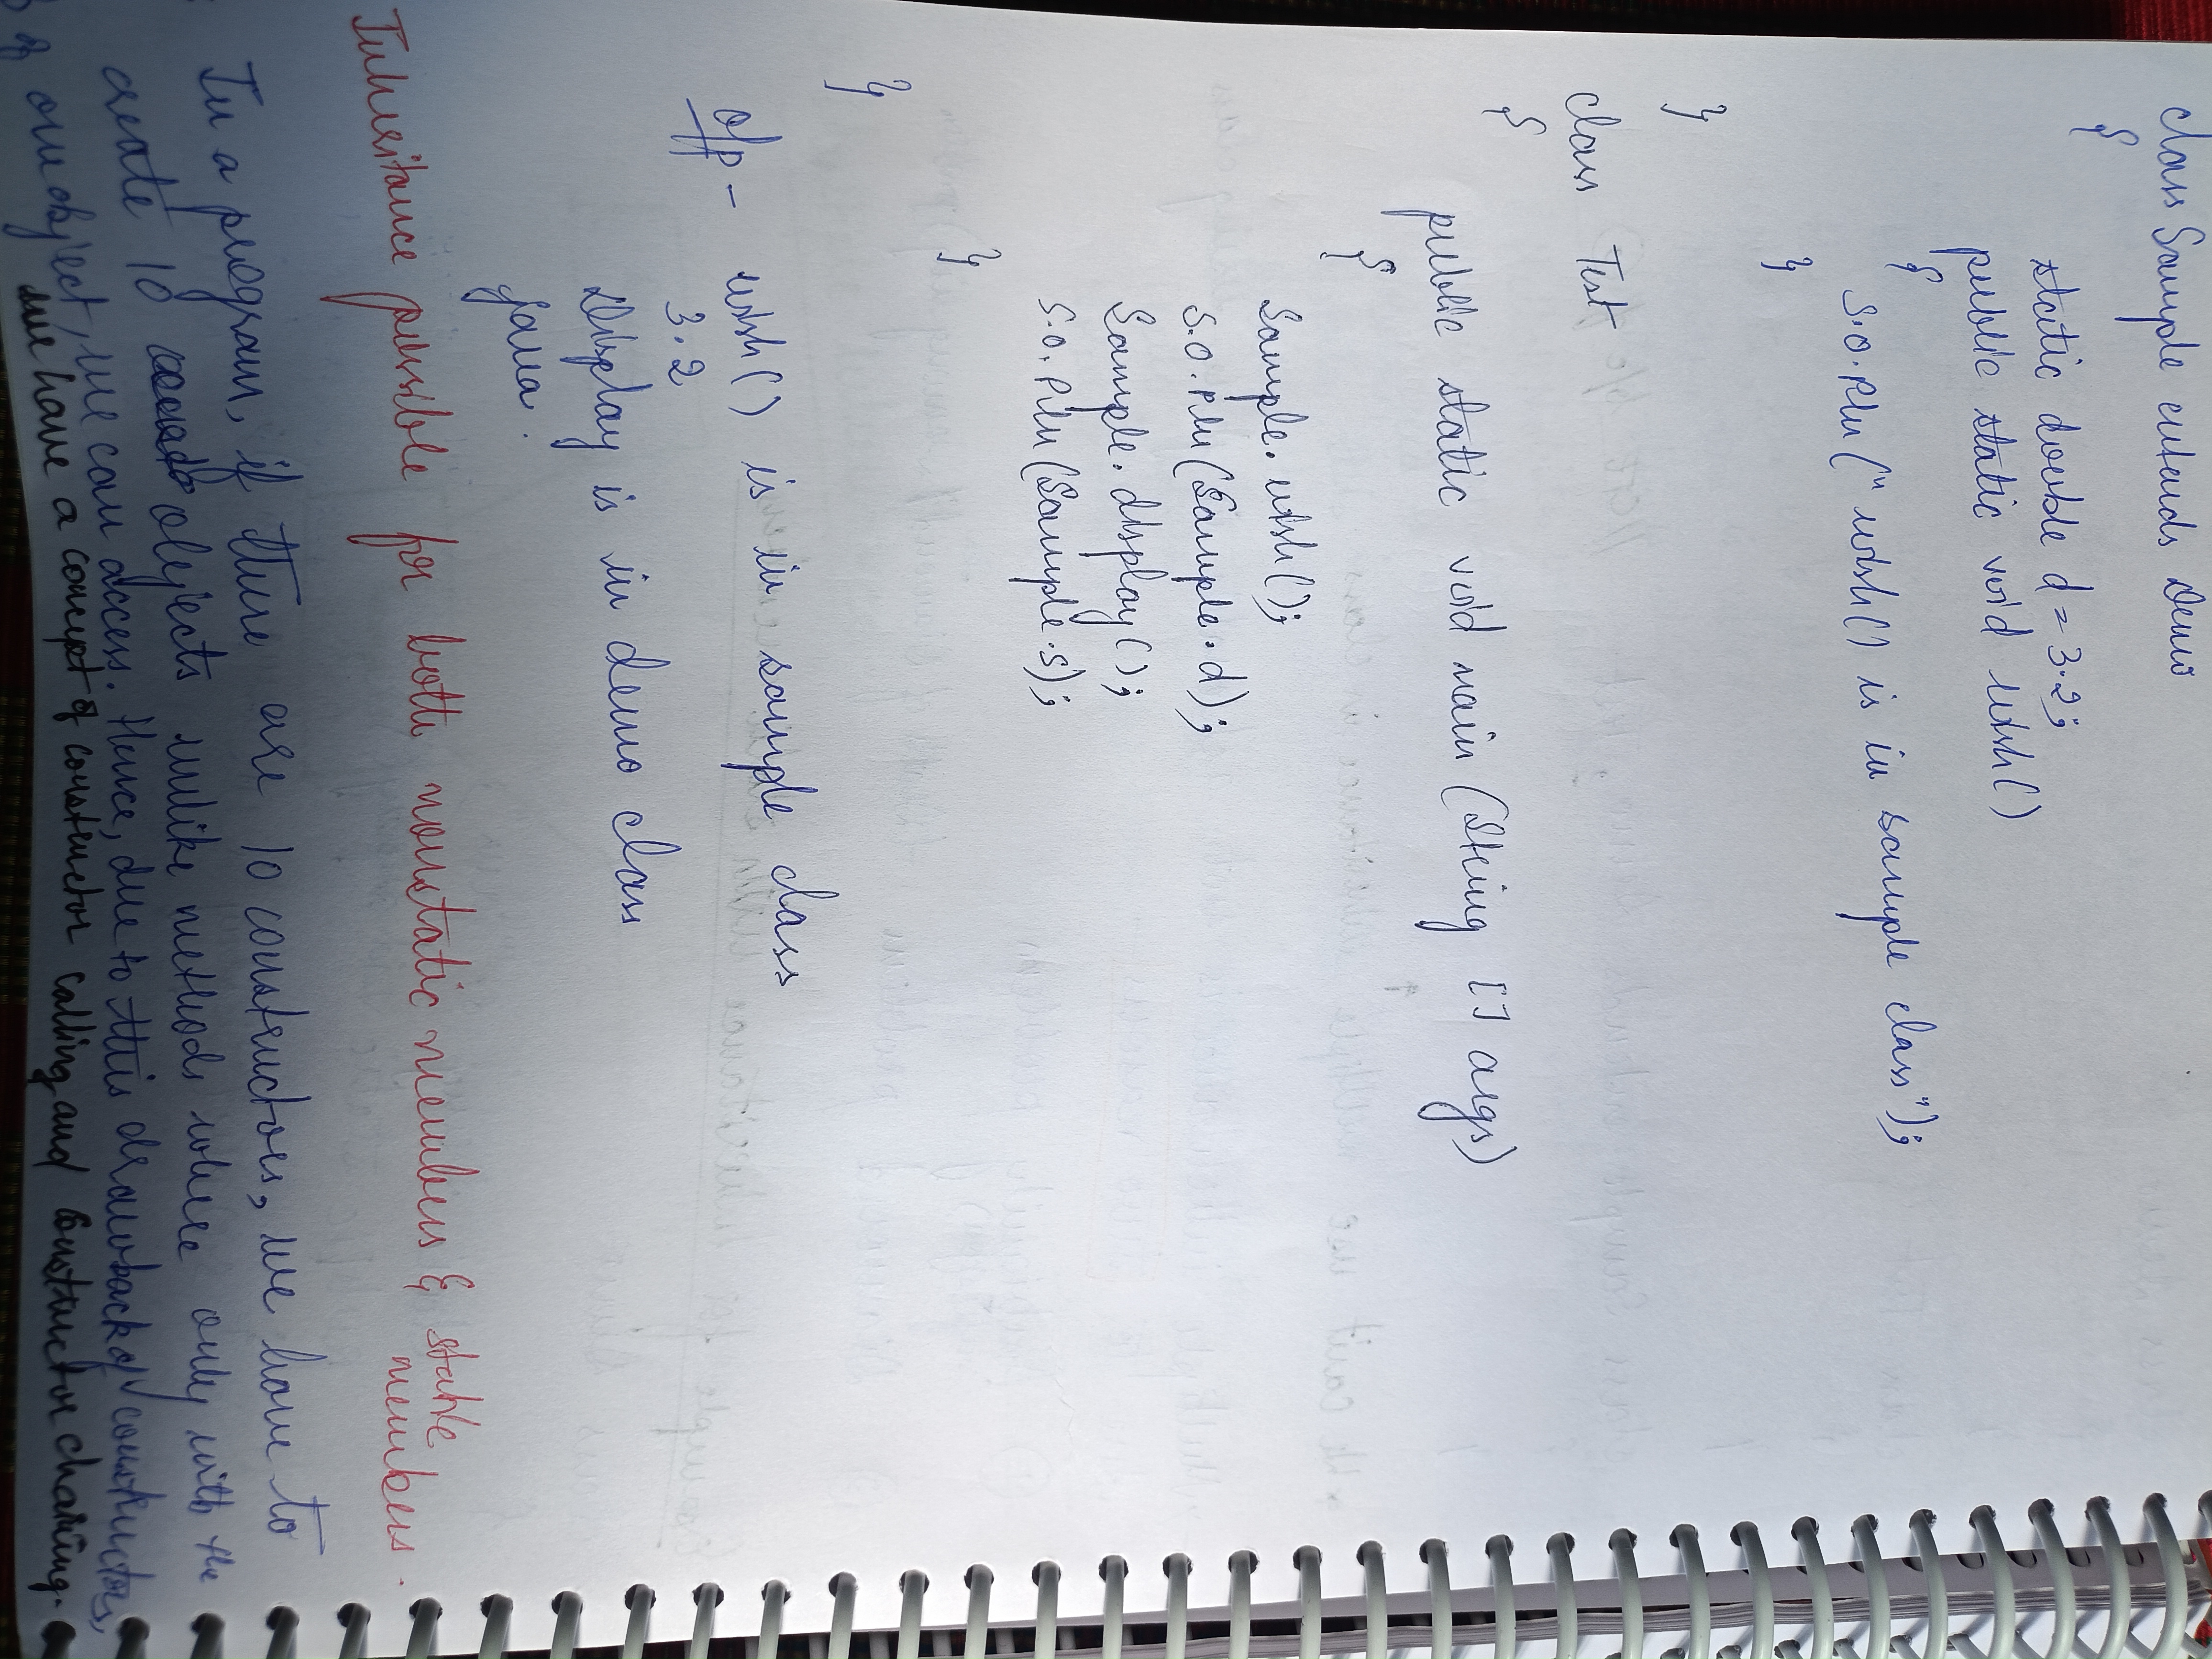 class Sample extends Demo
{
static double d = 3.2;
public static void wish()
{
S.O.Pln ("wish() is in sample class");
}
}
class Test
{
public static void main (String [] args)
{
Sample.wish();
S.O.Pln (Sample.d);
Sample.display();
S.O.Pln (Sample.s);
}
}
o/p - wish() is in sample class
3.2
Display is in demo class
java.
Inheritance possible for both nonstatic members & static
members.
In a program, if there are 10 constructors, we have to
create 10 objects unlike methods where only with the
of one object, we can access. Hence, due to this drawback of constructors,
we have a concept of constructor calling and constructor chaining.